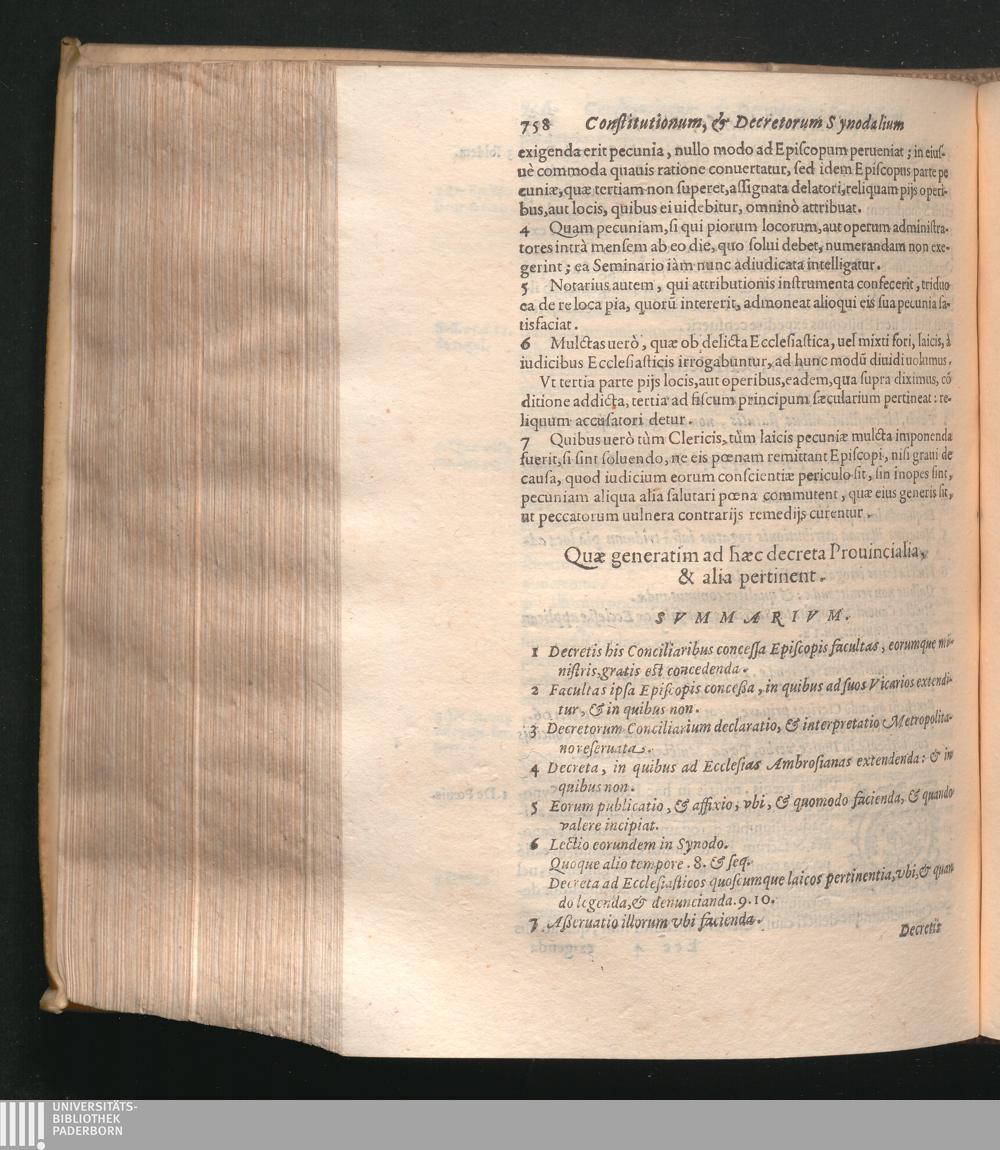 758 Conſtitutionum, & Decretorum Synodalium
exigenda erit pecunia, nullo modo ad Epiſcopum perueniat; in eiuſ-
uè commoda quauis ratione conuertatur, ſed idem Epiſcopus parte pe
cuniæ, quæ tertiam non ſuperet, aſſignata delatori, reliquam pijs operi-
bus, aut locis, quibus ei uidebitur, omninò attribuat.
4 Quam pecuniam, ſi qui piorum locorum, aut operum adminiſtra-
tores intrà menſem ab eo die, quo ſolui debet, numerandam non exe-
gerint; ea Seminario iàm nunc adiudicata intelligatur.
5 Notarius autem, qui attributionis inſtrumenta confecerit, triduo
ea de re loca pia, quorū intererit, admoneat alioqui eis ſua pecunia ſa-
tisfaciat.
6 Mulctas uerò, quæ ob delicta Eccleſiaſtica, uel mixti fori, laicis, à
iudicibus Eccleſiaſticis irrogabuntur, ad hunc modū diuidi uolumus.
Vt tertia parte pijs locis, aut operibus, eadem, qua ſupra diximus, cō
ditione addicta, tertia ad fiſcum principum ſæcularium pertineat: re-
liquum accuſatori detur.
7 Quibus uerò tùm Clericis, tùm laicis pecuniæ mulcta imponenda
fuerit, ſi ſint ſoluendo, ne eis pœnam remittant Epiſcopi, niſi graui de
cauſa, quod iudicium eorum conſcientiæ periculo ſit, ſin inopes ſint,
pecuniam aliqua alia ſalutari pœna commutent, quæ eius generis ſit,
ut peccatorum uulnera contrarijs remedijs curentur.
Quæ generatim ad hæc decreta Prouincialia,
& alia pertinent.
SVMMARIVM.
1 Decretis his Conciliaribus conceſſa Epiſcopis facultas, eorumque mi-
niſtris, gratis eſt concedenda.
2 Facultas ipſa Epiſcopis conceßa, in quibus ad ſuos Vicarios extendi-
tur, & in quibus non.
3 Decretorum Conciliarium declaratio, & interpretatio Metropolita-
no reſeruata.
4 Decreta, in quibus ad Eccleſias Ambroſianas extendenda: & in
quibus non.
5 Eorum publicatio, & affixio, vbi, & quomodo facienda, & quando
valere incipiat.
6 Lectio eorundem in Synodo.
Quoque alio tempore. 8. & ſeq.
Decreta ad Eccleſiaſticos quoſcumque laicos pertinentia, vbi, & quan
do legenda, & denuncianda. 9. 10.
7 Aßeruatio illorum vbi facienda.
Decretis
UNIVERSITÄTS-
BIBLIOTHEK
PADERBORN